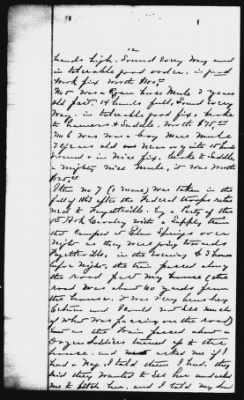 hands high. Sound Every Way and
in tolerable good order. in good
Work fix worth
No 5 was a Mule 3 years
old past. 14 hands full, Sound every
Way, in tolerable good fix. broke
to & Saddle. Worth
No 6 was a bay Mule
7 years old near or quite 15 hands
Sound & in Nice fix. broke to Saddle,
a mighty Nice Mule, it was Worth

Item no 7 (1 mare) was taken in the
fall of 1863 after the Federal troops retur
ned to Fayetteville, by a Party of the
1st Ark Cavalry With a Supply train
that camped at Elm Springs over
Night as they were going towards
Fayetteville, in the evening 2 or 3 hours
before Night, the train passed along
the road past my house (the
road was about 60 yards from
the house. it was very brushy
between and I could not see much
of what was passing on the road)
but as the train passed about a
Dozen Soldiers turned up to the
house. and asked me if I
had a Nag, I told them I had. they
said they wanted to see her and asked
me to fetch her, and I told my